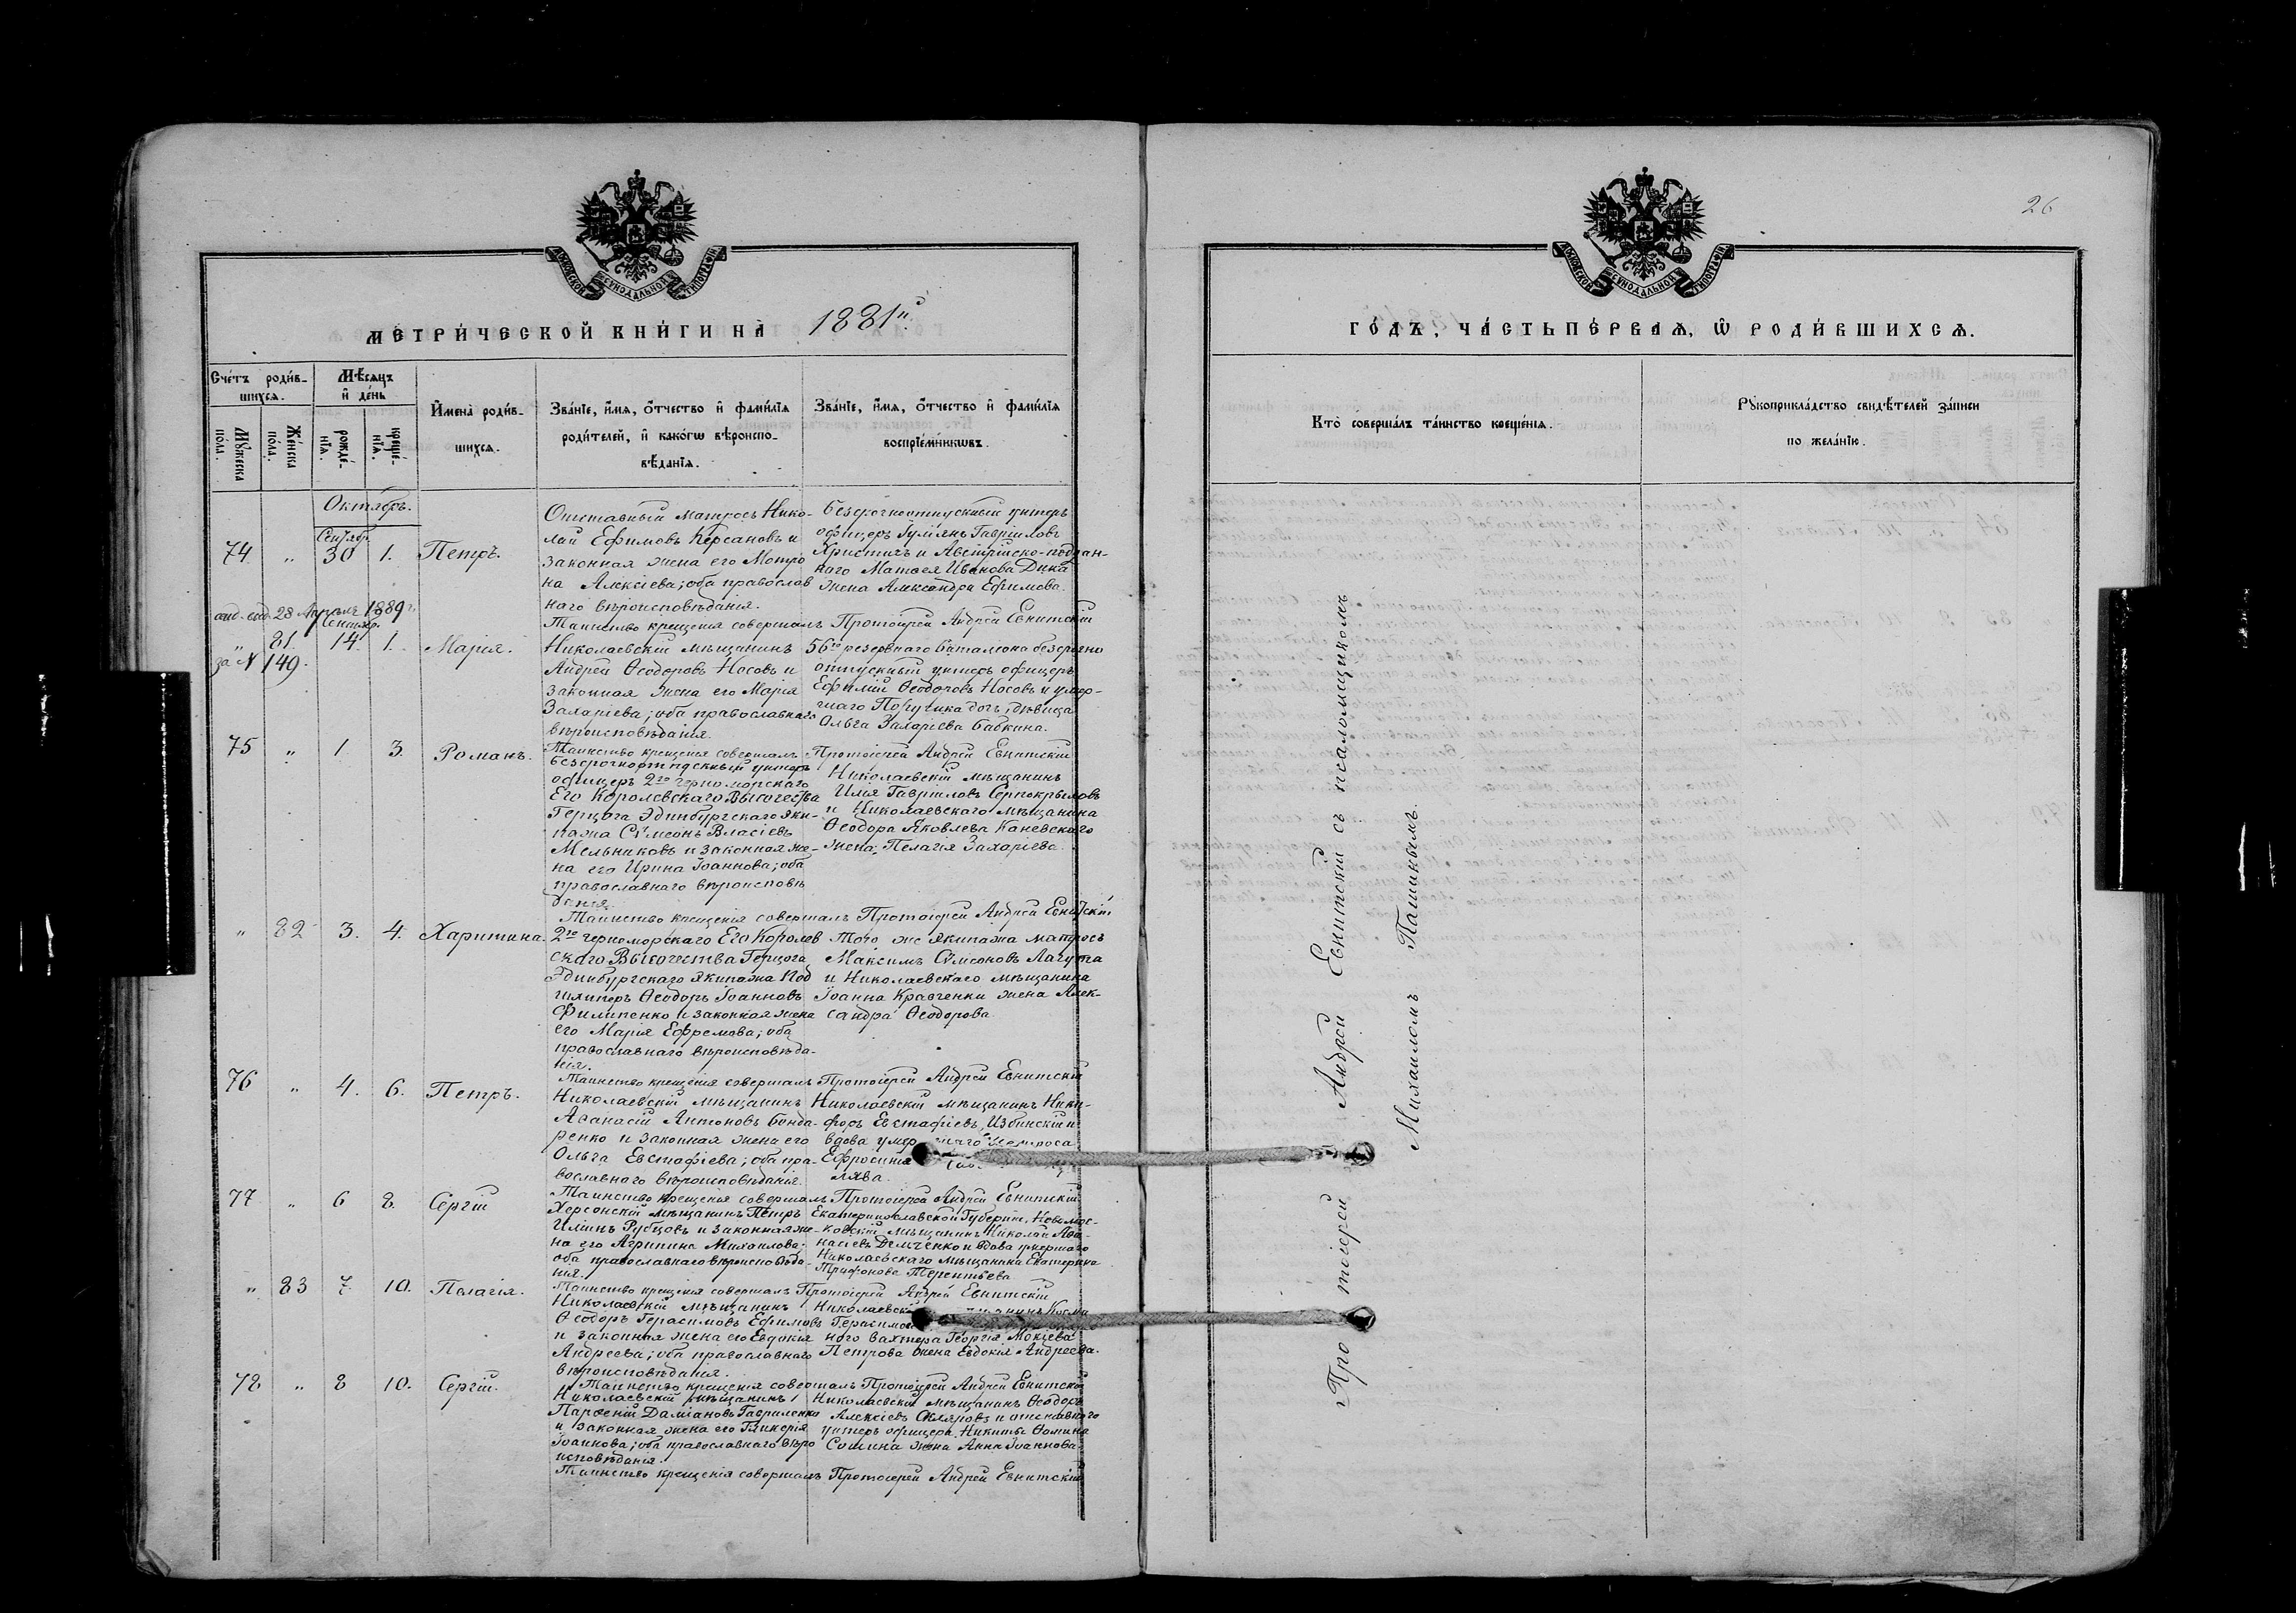 26
МЕТРИ́ЧЕСКОЙ КНИ́ГИ НА̀ 1881й.
Сче́тъ роди́в-
шихсѧ.
Мѣ́сѧцъ
и҆ де́нь
Мꙋ́жеска
по́ла.
Же́нска
по́ла.
рожде́-
нїѧ.
креще́-
нїѧ.
И҆мена̀ роди́в-
шихсѧ.
Зва́нїе, и҆́мѧ, ѻ҆́тчество и҆ фами́лїѧ
роди́телей, и҆ како́гѡ вѣроиспо-
вѣ́данїѧ.
Зва́нїе, и҆́мѧ, ѻ҆́тчество и҆ фами́лїѧ
воспрїе́мникѡвъ.
Октябрь.
74 „ Сентябр. 30 1. Петръ.
Отставный матросъ Нико-
лай Ефимовъ Керсановъ и
законная жена его Мотро
на Алексіева; оба православ
наго вѣроисповѣданія.
Безсрочноотпускный унтеръ
офицеръ Гуміянъ Гавріиловъ
Христичъ и Австрійско-поддан-
наго Матѳея Иванова Дика
жена Александра Ефимова.
Таинство крещенія совершалъ Протоіерей Андрей Евнитскій
28 Апрѣля 1889 г.
за N 149.
„ 81. Сентяр. 14. 1. Марія.
Николаевскій мѣщанинъ
Андрей Ѳеодоровъ Носовъ и
законная жена его Марія
Захаріева; оба православнаго
вѣроисповѣданія.
56го резервнаго баталіона безсрочно
отпускный унтеръ офицеръ
Ефимій Ѳеодоровъ Носовъ и умер-
шаго Поручика дочь, дѣвица
Ольга Захаріева Бабкина.
Таинство крещенія совершалъ Протоіерей Андрей Евнитскій
75 „ 1. 3. Романъ.
Безсрочноотпускный унтеръ
офицеръ 2го черноморскаго
Его Королевскаго Высочества
Герцога Эдинбургскаго эки-
пажа Сѵмеонъ Власіевъ
Мельниковъ и законная же-
на его Ирина Іоаннова; оба
православнаго вѣроисповѣ
данія.
Николаевскій мѣщанинъ
Илія Гавріиловъ Сернокрыловъ
и Николаевскаго мѣщанина
Ѳеодора Яковлева Каневскаго
жена, Пелагія Захаріева.
Таинство крещенія совершалъ Протоіерей Андрей Евнитскій
„ 82 3. 4. Харитина.
2го черноморскаго Его Королев
скаго Высочества Герцога
Эдинбургскаго экипажа Под
шкиперъ Ѳеодоръ Іоанновъ
Филипенко и законная жена
его Марія Ефремова; оба
православнаго вѣроисповѣда-
нія.
Того же экипажа матросъ
Максимъ Сѵмеоновъ Лагута
и Николаевскаго мѣщанина
Іоанна Кравченки жена Алек-
сандра Ѳеодорова
Таинство крещенія совершалъ Протоіерей Андрей Евнитскій
76 „ 4. 6. Петръ.
Николаевскій мѣщанинъ
Аѳанасій Антоновъ Бонда-
ренко и законная жена его
Ольга Евстафіева; оба пра-
вославнаго вѣроисповѣданія.
Николаевскій мѣщанинъ Ники-
форъ Евстафіевъ Избинскій и
вдова матроса
Ефросинія
Таинство крещенія совершалъ Протоіерей Андрей Евнитскій
77 „ 6 8. Сергій
Херсонскій мѣщанинъ Петръ
Илiинъ Рубцовъ и законная же-
на его Агрипина Михаилова;
оба православнаго вѣроисповѣда-
нія.
Екатеринославской Губерніи, Новомос-
ковскій мѣщанинъ Николай Аѳа-
насіевъ Демченко и вдова умершаго
Николаевскаго мѣщанина Екатерина
Трифонова Терентьева
Таинство крещенія совершалъ Протоіерей Андрей Евнитскій
„ 83 7 10. Пелагія.
Николаевскій мѣщанинъ
Ѳеодоръ Герасимовъ Ефимовъ
и законная жена его Евдокія
Андреева; оба православнаго
вѣроисповѣданія.
Косма
наго вахтера Георгія Мокіева
Петрова жена Евдокія Андреева.
Таинство крещенія совершалъ Протоіерей Андрей Евнитскій
78 „ 8 10. Сергій.
Николаевскій мѣщанинъ
Парѳеній Даміановъ Гавриленко
и законная жена его Гликерія
Іоаннова; оба православнаго вѣро
исповѣданія.
Николаевскій мѣщанинъ Ѳеодоръ
Алексіевъ Скляровъ и отставнаго
унтеръ офицера Никиты Ѳомина
Сошина жена Анна Іоаннова.
Таинство крещенія совершалъ Протоіерей Андрей Евнитскій
ГО́ДЪ, ЧА́СТЬ ПЕ́РВАѦ, Ѡ҆ РОДИ́ВШИХСѦ.
Кто̀ соверша́лъ та́инство креще́нїѧ.
Рꙋкоприкла́дство свидѣ́телей за́писи
по жела́нїю.
Протоіерей Андрей Евнитскій съ псаломщикомъ
Михаиломъ Пашинымъ.